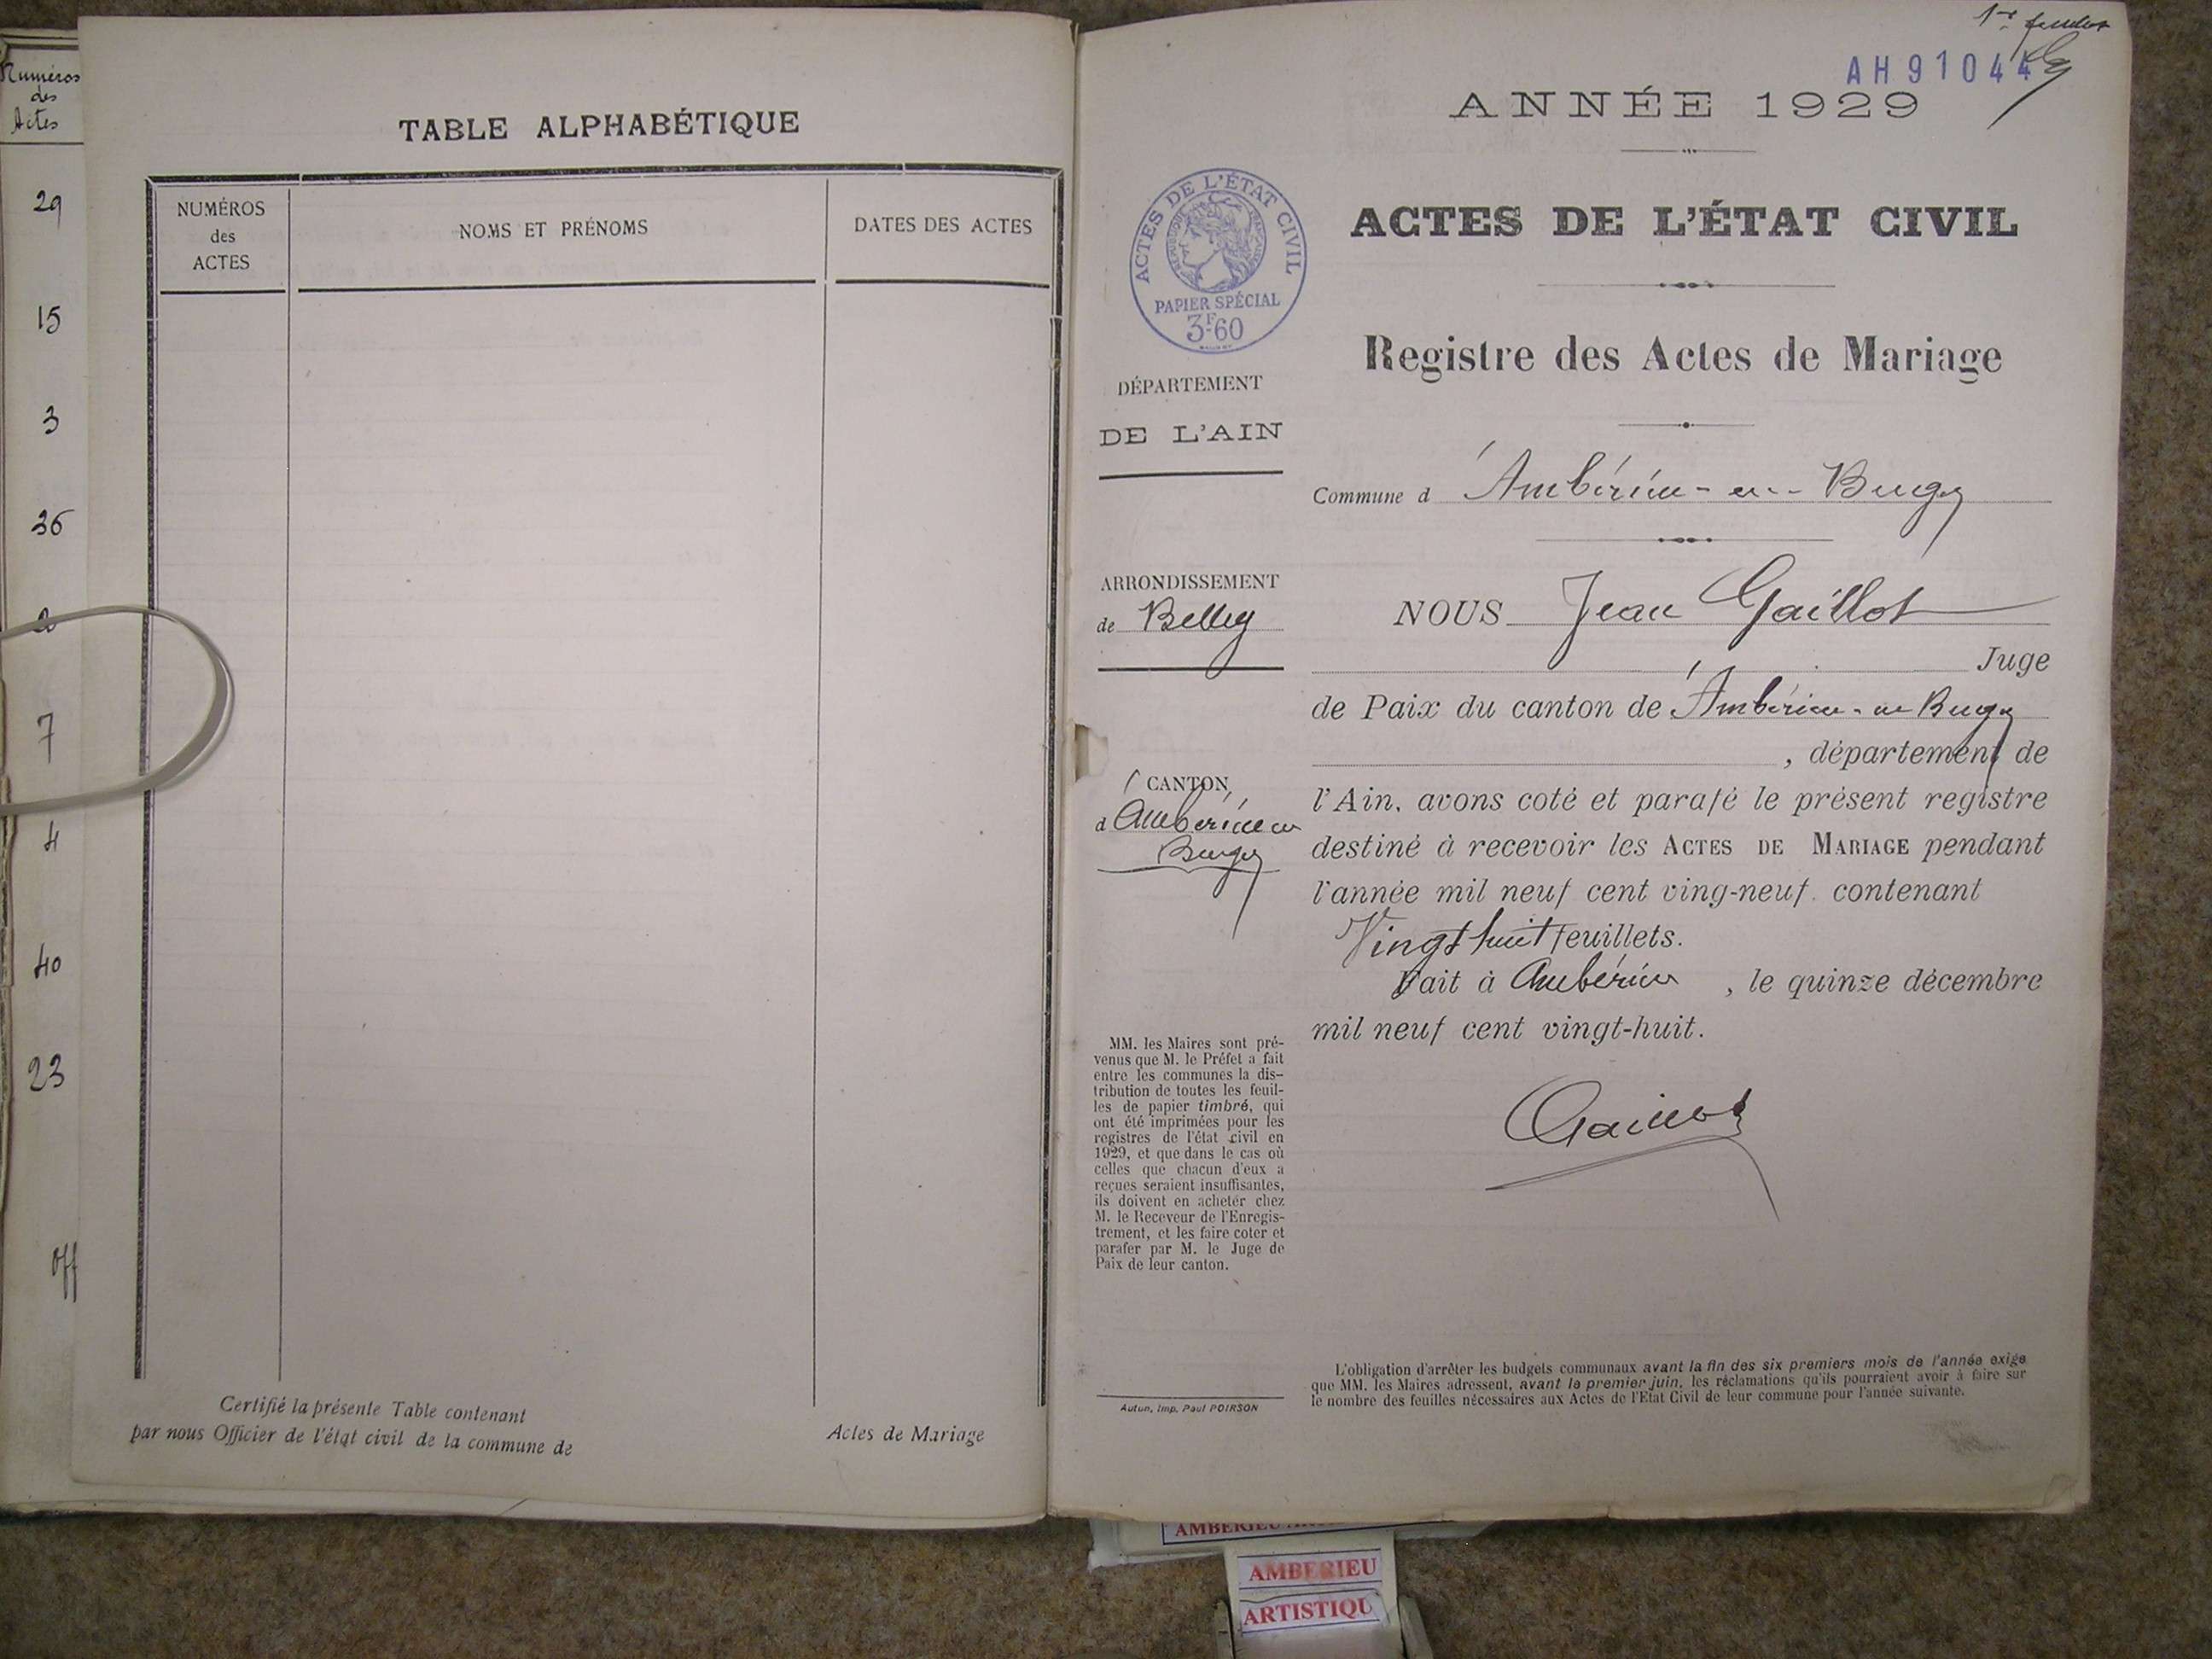 Numéros
des
Actes
29
15
3
36
7
4
40
23
off
TABLE ALPHABÉTIQUE
NUMÉROS
des
ACTES
NOMS ET PRÉNOMS
DATES DES ACTES
Certifié la présente Table contenant
Actes de Mariage
par nous Officier de l'état civil de la commune de
1er feuillet
AH91044
ANNÉE 1929
ACTES DE L'ÉTAT CIVIL
PAPIER SPÉCIAL
3F.60
ACTES DE L'ÉTAT CIVIL
Registre des Actes de Mariage
DÉPARTEMENT
DE L'AIN
Commune d'Ambérieu-en-Bugey
ARRONDISSEMENT
de Belley
CANTON
d'Ambérieu en
Bugey
NOUS Jean Gaillot
Juge
de Paix du canton de Ambérieu-en Bugey
, département de
l'Ain, avons coté et parafé le présent registre
destiné à recevoir les ACTES DE MARIAGE pendant
l'année mil neuf cent ving-neuf. contenant
Vingt huit feuillets.
Fait à Ambérieu , le quinze décembre
mil neuf cent vingt-huit.
Gaillot
MM. les Maires sont pré-
venus que M. le Préfet a fait
entre les communes la dis-
tribution de toutes les feuil-
les de papier timbré, qui
ont été imprimées pour les
registres de l'état civil en
1929, et que dans le cas où
celles que chacun d'eux a
reçues seraient insuffisantes,
ils doivent en acheter chez
M. le Receveur de l'Enregis-
trement, et les faire coter et
parafer par M. le Juge de
Paix de leur canton.
Autun, Imp. Paul POIRSON
L'obligation d'arrêter les budgets communaux avant la fin des six premiers mois de l'année exige
que MM. les Maires adressent, avant le premier juin, les réclamations qu'ils pourraient avoir à faire sur
le nombre des feuilles nécessaires aux Actes de l'Etat Civil de leur commune pour l'année suivante.
AMBERIEU
AMBERIEU
ARTISTIQU